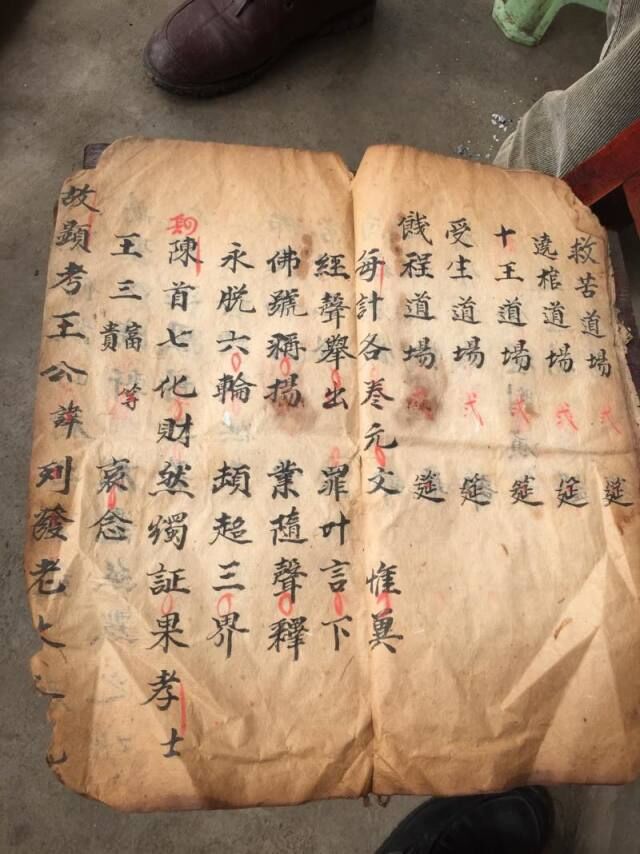 救苦道場 弍 筵
遶棺道場 弍 筵
十王道場 弍 筵
受生道場 弍 筵
餞程道場 筵
每計各卷元文 惟冀
經聲舉出 罪叶言下
佛號稱揚 業隨聲釋
永脫六輪 頓超三界
陳首七化財然燭証果孝士
王三富貴等 哀念
故顯考王公諱列發老大